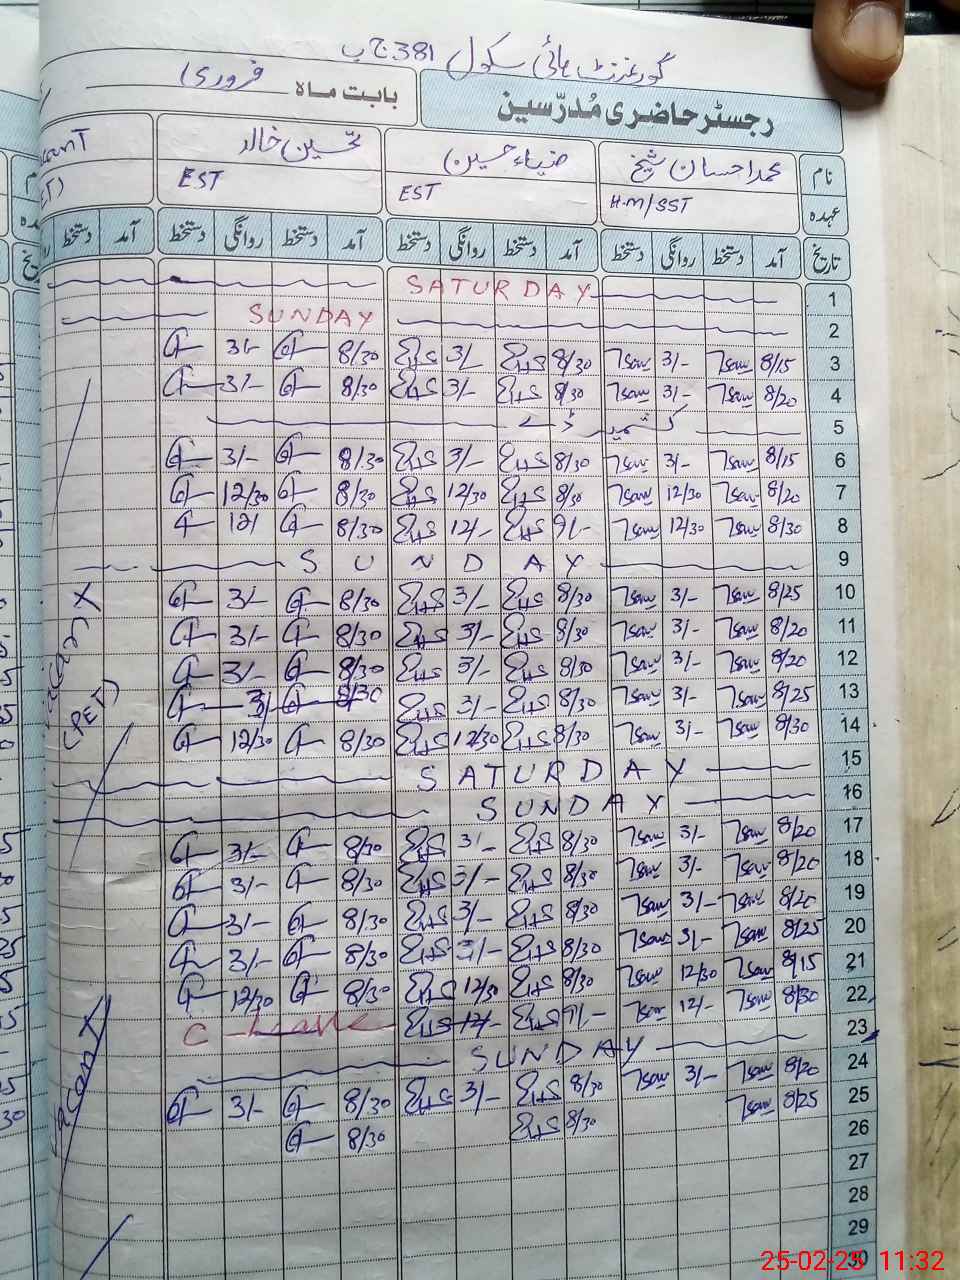 گورنمنٹ ہائی سکول 381 ج ب
رجسٹر حاضری مُدرّسین بابت ماہ فروری
نام محمد احسان شیخ ضیاء حسین تحسین خالد
عہدہ H.M/SST EST EST
تاریخ آمد دستخط روانگی دستخط آمد دستخط روانگی دستخط آمد دستخط روانگی دستخط آمد دستخط
1 SATURDAY
2 SUNDAY
3 8/15 3/- 8/30 3/- 8/30 3/-
4 8/20 3/- 8/30 3/- 8/30 3/-
5 کشمیر ڈے
6 8/15 3/- 8/30 3/- 8/30 3/-
7 8/20 12/30 8/30 12/30 8/30 12/30
8 8/30 12/30 9/- 12/- 8/30 12/
9 SUNDAY
10 8/25 3/- 8/30 3/- 8/30 3/-
11 8/20 3/- 8/30 3/- 8/30 3/-
12 8/20 3/- 8/30 3/- 8/30 3/-
13 8/25 3/- 8/30 3/- 8/30 3/-
14 8/30 3/- 8/30 12/30 8/30 12/30
15 SATURDAY
16 SUNDAY
17 8/20 3/- 8/30 3/- 8/30 3/-
18 8/20 3/- 8/30 3/- 8/30 3/-
19 8/20 3/- 8/30 3/- 8/30 3/-
20 8/25 3/- 8/30 3/- 8/30 3/-
21 8/15 12/30 8/30 12/30 8/30 12/30
22 8/30 12/- 9/- 12/- C leave
23 SUNDAY
24 8/20 3/- 8/30 3/- 8/30 3/-
25 8/25 8/30 8/30
26
27
28
29
30
Vacant
(PET)
25-02-25 11:32